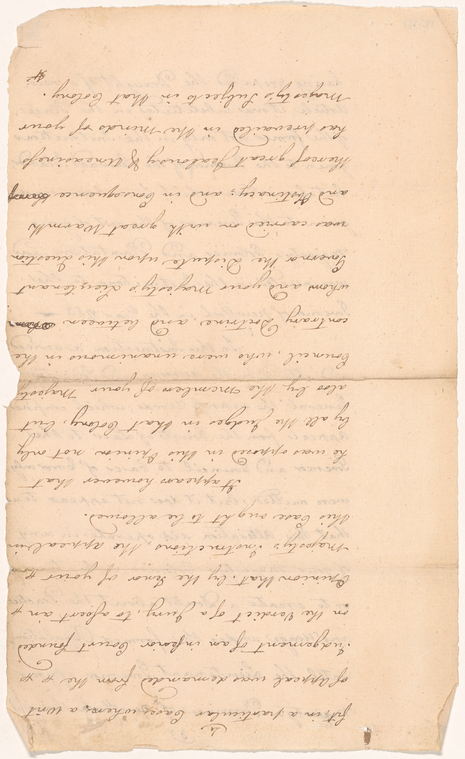 fit, in a particular Case, where, a Writ
of Appeal was demanded from the
Judgement of an inferior Court founded
on the Verdict of a Jury, to assert an
Opinion that, by the Tenor of your
Majesty's Instructions, the Appeal in
this Case ought to be allowed.
It appears however that
he was opposed in this Opinion not only
by all the Judges in that Colony, but
also by the Members of your Majesty's
Council, who were unanimous in the
contrary Doctrine, and between
whom and your Majesty's Lieutenant
Governor the Dispute upon this Question
was carried on with great Warmth
and Obstinacy; and in Consequence
thereof great Jealousy & Uneasiness
has prevailed in the Minds of your
Majesty's Subjects in that Colony.